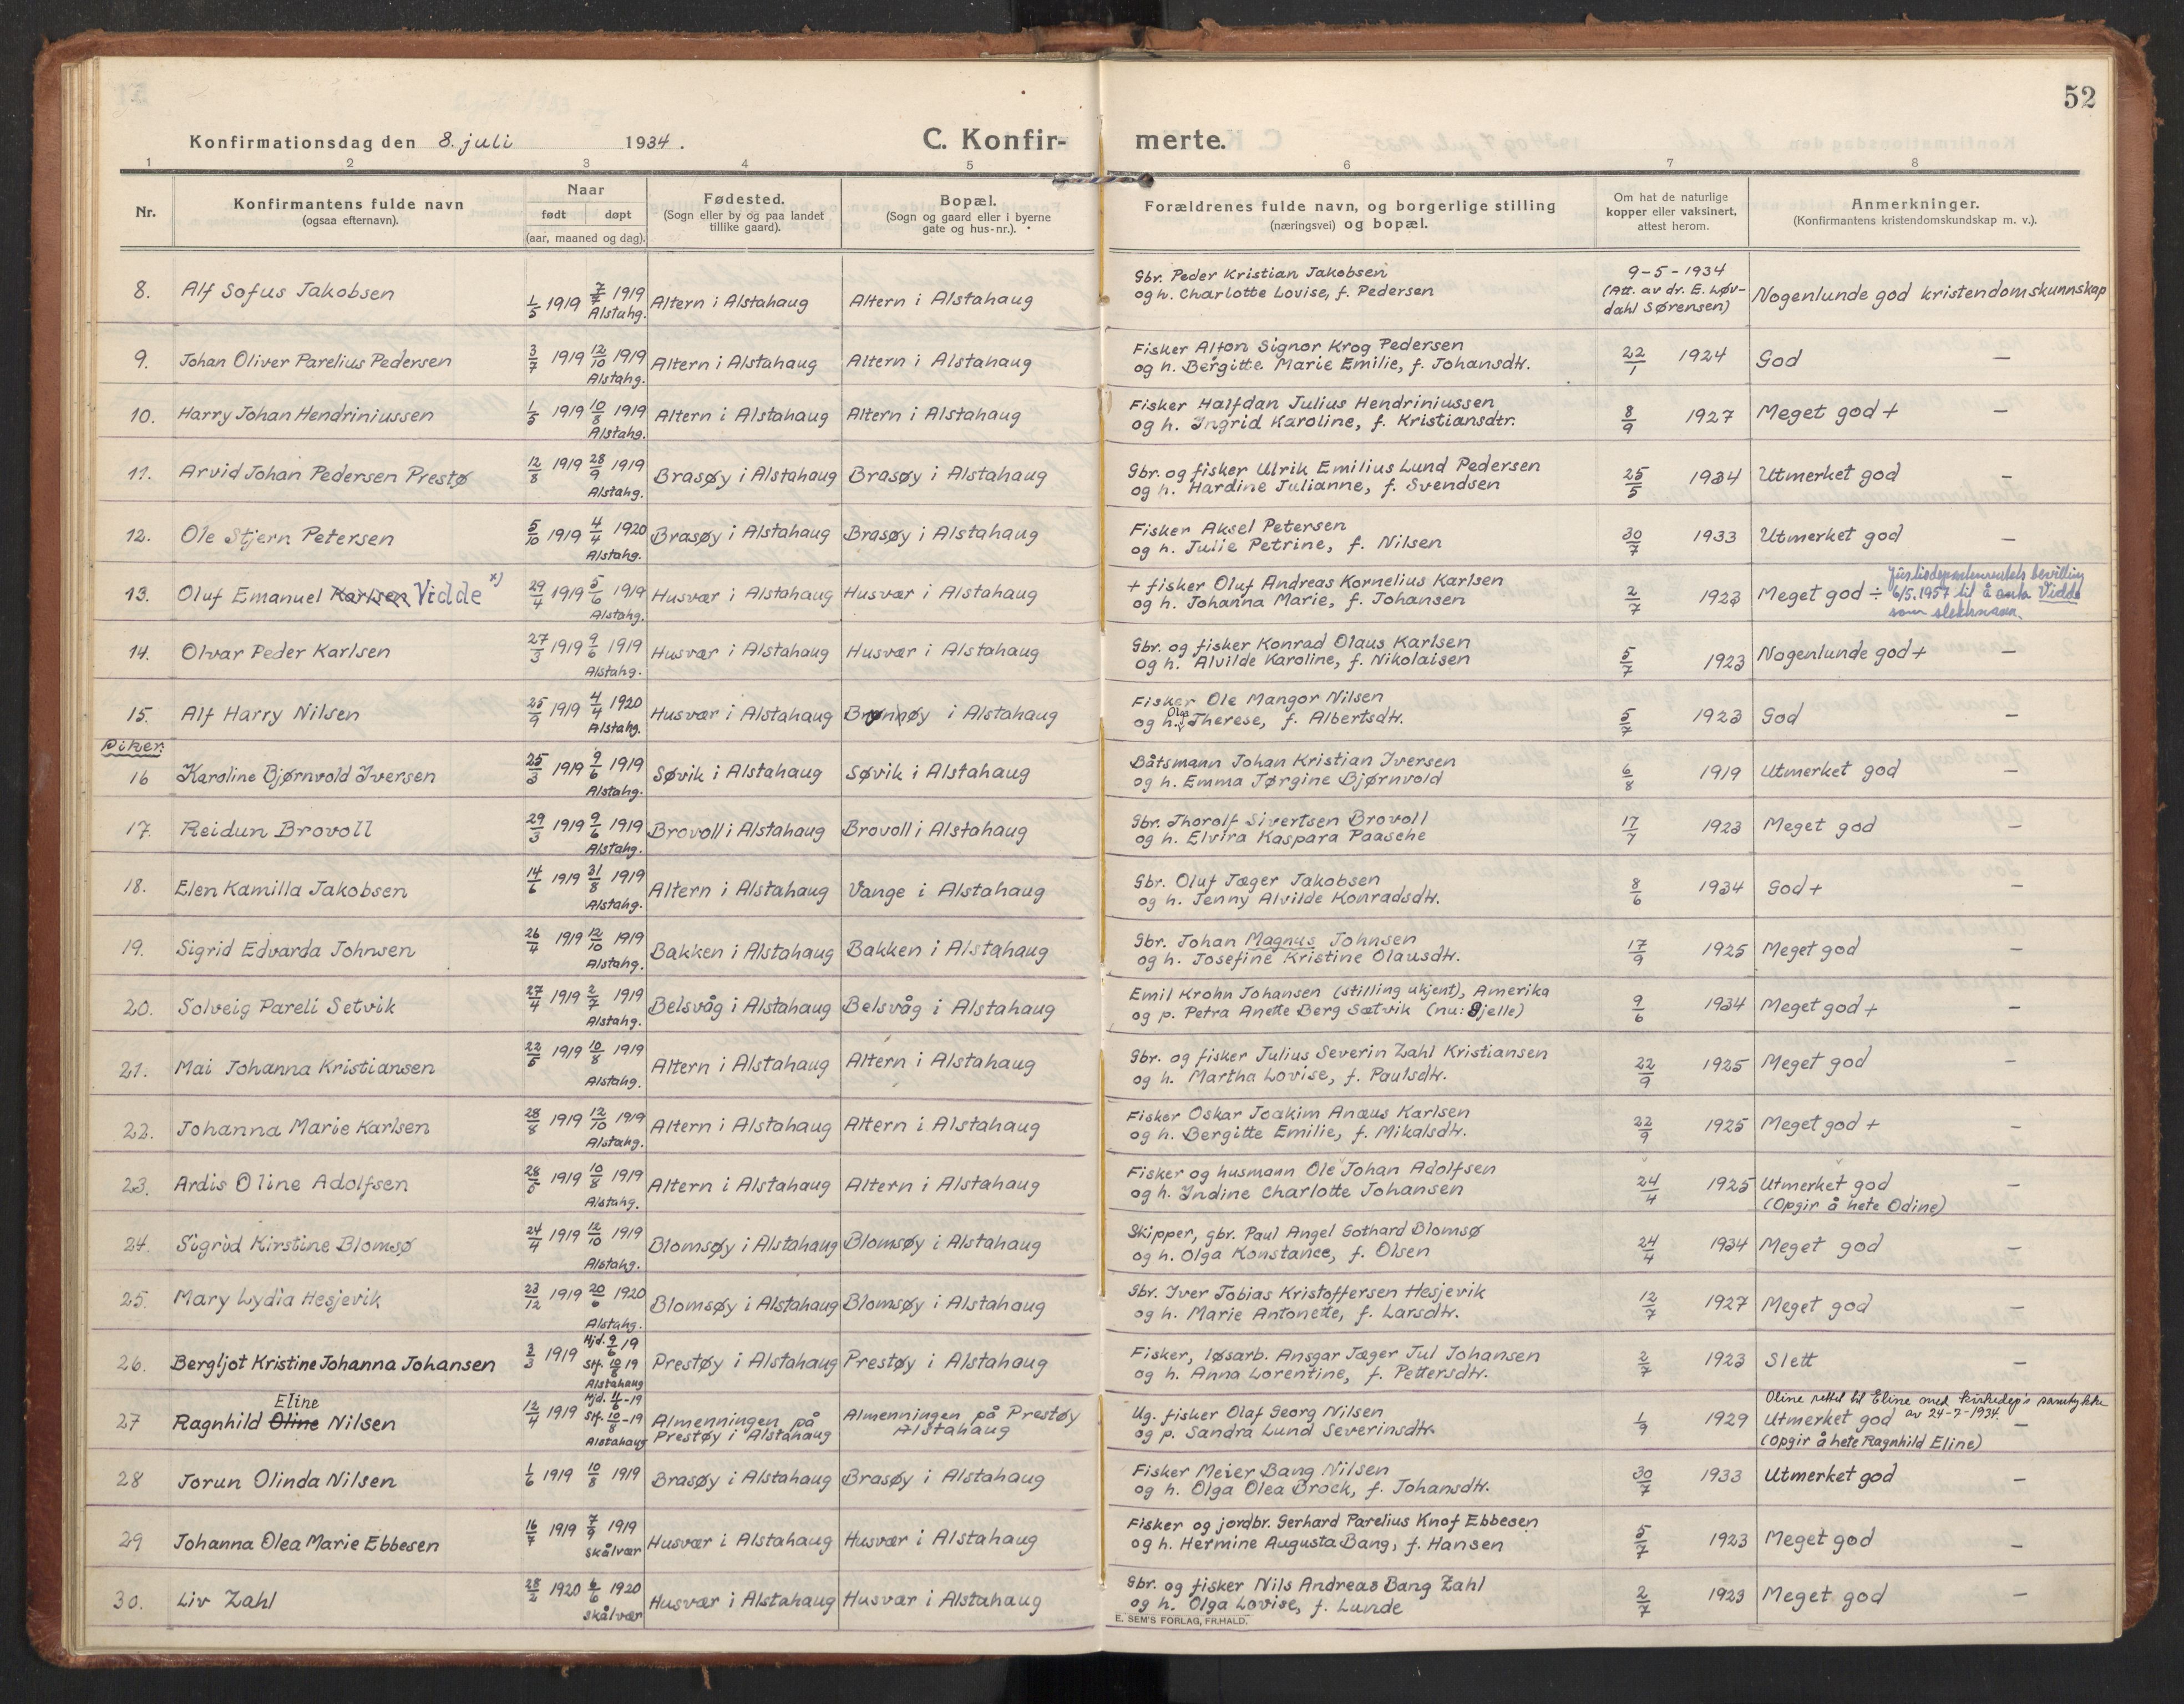 52
Konfirmationsdag den 8. juli 1934.
C. Konfirmerte.
1 2 3 4 5 6 7 8
Nr.
Konfirmantens fulde navn
(ogsaa efternavn).
Naar
født døpt
(aar, maaned og dag).
Fødested.
(Sogn eller by og paa landet
tillike gaard).
Bopæl.
(Sogn og gaard eller i byerne
gate og hus-nr.).
Forældrenes fulde navn, og borgerlige stilling
(næringsvei) og bopæl.
Om hat de naturlige
kopper eller vaksinert,
attest herom.
Anmerkninger.
(Konfirmantens kristendomskundskap m. v.).
8. Alf Sofus Jakobsen 1/5 1919 7/7 1919 Alstahg. Altern i Alstahaug Altern i Alstahaug
Gbr. Peder Kristian Jakobsen
og h. Charlotte Lovise, f. Pedersen
9-5-1934
(Att. av dr. E. Løv-
dahl Sørensen)
Nogenlunde god kristendomskunnskap
9. Johan Oliver Parelius Pedersen 3/7 1919 12/10 1919 Alstahg. Altern i Alstahaug Altern i Alstahaug
Fisker Alfon Signor Krog Pedersen
og h. Bergitte Marie Emilie, f. Johansdtr.
22/1 1924 God —
10. Harry Johan Hendriniussen 1/5 1919 10/8 1919 Alstahg. Altern i Alstahaug Altern i Alstahaug
Fisker Halfdan Julius Hendriniussen
og h. Ingrid Karoline, f. Kristiansdtr.
8/9 1927 Meget god + —
11. Arvid Johan Pedersen Prestø 12/8 1919 28/9 1919 Alstahg. Brasøy i Alstahaug Brasøy i Alstahaug
Gbr. og fisker Ulrik Emilius Lund Pedersen
og h. Hardine Julianne, f. Svendsen
25/5 1934 Utmerket god —
12. Ole Stjern Petersen 5/10 1919 4/4 1920 Alstahg. Brasøy i Alstahaug Brasøy i Alstahaug
Fisker Aksel Petersen
og h. Julie Petrine, f. Nilsen
30/7 1933 Utmerket god —
13. Oluf Emanuel Karlsen Vidde x) 29/4 1919 5/6 1919 Alstahg. Husvær i Alstahaug Husvær i Alstahaug
+ fisker Oluf Andreas Kornelius Karlsen
og h. Johanna Marie, f. Johansen
2/7 1923 Meget god ÷
Justisdepartementets bevilling
6/5.1957 til å anta Vidde
som slektsnavn.
14. Olvar Peder Karlsen 27/3 1919 9/6 1919 Alstahg. Husvær i Alstahaug Husvær i Alstahaug
Gbr. og fisker Konrad Olaus Karlsen
og h. Alvilde Karoline, f. Nikolaisen
5/7 1923 Nogenlunde god + —
15. Alf Harry Nilsen 25/9 1919 4/4 1920 Alstahg. Husvær i Alstahaug Brønnøy i Alstahaug
Fisker Ole Mangor Nilsen
og h. Olga Therese, f. Albertsdtr.
5/7 1923 God —
Piker:
16 Karoline Bjørnvold Iversen 25/3 1919 9/6 1919 Alstahg. Søvik i Alstahaug Søvik i Alstahaug
Båtsmann Johan Kristian Iversen
og h. Emma Jørgine Bjørnvold
6/8 1919 Utmerket god —
17. Reidun Brovoll 29/3 1919 9/6 1919 Alstahg. Brovoll i Alstahaug Brovoll i Alstahaug
Gbr. Thorolf Sivertsen Brovoll
og h. Elvira Kaspara Paasche
17/7 1923 Meget god —
18. Elen Kamilla Jakobsen 14/6 1919 31/8 1919 Alstahg. Altern i Alstahaug Vange i Alstahaug
Gbr. Oluf Jæger Jakobsen
og h. Jenny Alvilde Konradsdtr.
8/6 1934 God + —
19. Sigrid Edvarda Johnsen 26/4 1919 12/10 1919 Alstahg. Bakken i Alstahaug Bakken i Alstahaug
Gbr. Johan Magnus Johnsen
og h. Josefine Kristine Olausdtr.
17/9 1925 Meget god —
20. Solveig Pareli Setvik 27/4 1919 2/7 1919 Alstahg. Belsvåg i Alstahaug Belsvåg i Alstahaug
Emil Krohn Johansen (stilling ukjent), Amerika
og p. Petra Anette Berg Sætvik (nu: Gjelle)
9/6 1934 Meget god + —
21. Mai Johanna Kristiansen 22/5 1919 10/8 1919 Alstahg. Altern i Alstahaug Altern i Alstahaug
Gbr. og fisker Julius Severin Zahl Kristiansen
og h. Martha Lovise, f. Paulsdtr.
22/9 1925 Meget god —
22. Johanna Marie Karlsen 28/8 1919 12/10 1919 Alstahg. Altern i Alstahaug Altern i Alstahaug
Fisker Oskar Joakim Anæus Karlsen
og h. Bergitte Emilie, f. Mikalsdtr.
22/9 1925 Meget god + —
23. Ardis Oline Adolfsen 28/5 1919 10/8 1919 Alstahg. Altern i Alstahaug Altern i Alstahaug
Fisker og husmann Ole Johan Adolfsen
og h. Indine Charlotte Johansen
24/4 1925 Utmerket god —
(Opgir å hete Odine)
24. Sigrid Kirstine Blomsø 24/4 1919 12/10 1919 Alstahg. Blomsøy i Alstahaug Blomsøy i Alstahaug
Skipper, gbr. Paul Angel Gothard Blomsø
og h. Olga Konstance, f. Olsen
24/4 1934 Meget god —
25. Mary Lydia Hesjevik 23/12 1919 20/6 1920 Alstahg. Blomsøy i Alstahaug Blomsøy i Alstahaug
Gbr. Iver Tobias Kristoffersen Hesjevik
og h. Marie Antonette, f. Larsdtr.
12/7 1927 Meget god —
26. Bergljot Kristine Johanna Johansen 3/3 1919 Hjd. 9/6 19 Stf. 10/8 19 Alstahaug Prestøy i Alstahaug Prestøy i Alstahaug
Fisker, løsarb. Ansgar Jæger Jul Johansen
og h. Anna Lorentine, f. Pettersdtr.
2/7 1923 Slett —
27 Ragnhild Oline Eline Nilsen 12/4 1919 Hjd. 11/6-19 Stf. 10/8-19 Alstahaug Almenningen på Prestøy i Alstahaug Almenningen på Prestøy Alstahaug
Ug. fisker Olaf Georg Nilsen
og p. Sandra Lund Severinsdtr.
1/9 1929
Oline rettet til Eline med kirkedep's samtykke
av 24-7-1934.
Utmerket god —
(Opgir å hete Ragnhild Eline)
28 Jorun Olinda Nilsen 1/6 1919 10/8 1919 Brasøy i Alstahaug Brasøy i Alstahaug
Fisker Meier Bang Nilsen
og h. Olga Olea Brock, f. Johansdtr.
30/7 1933 Utmerket god —
29 Johanna Olea Marie Ebbesen 16/7 1919 7/9 1919 Skålvær Husvær i Alstahaug Husvær i Alstahaug
Fisker og jordbr. Gerhard Parelius Knof Ebbesen
og h. Hermine Augusta Bang, f. Hansen
5/7 1923 Meget god —
30. Liv Zahl 28/2 1920 6/6 1920 Skålvær Husvær i Alstahaug Husvær i Alstahaug
Gbr. og fisker Nils Andreas Bang Zahl
og h. Olga Lovise, f. Lunde
2/7 1923 Meget god —
E. SEM'S FORLAG, FR.HALD.